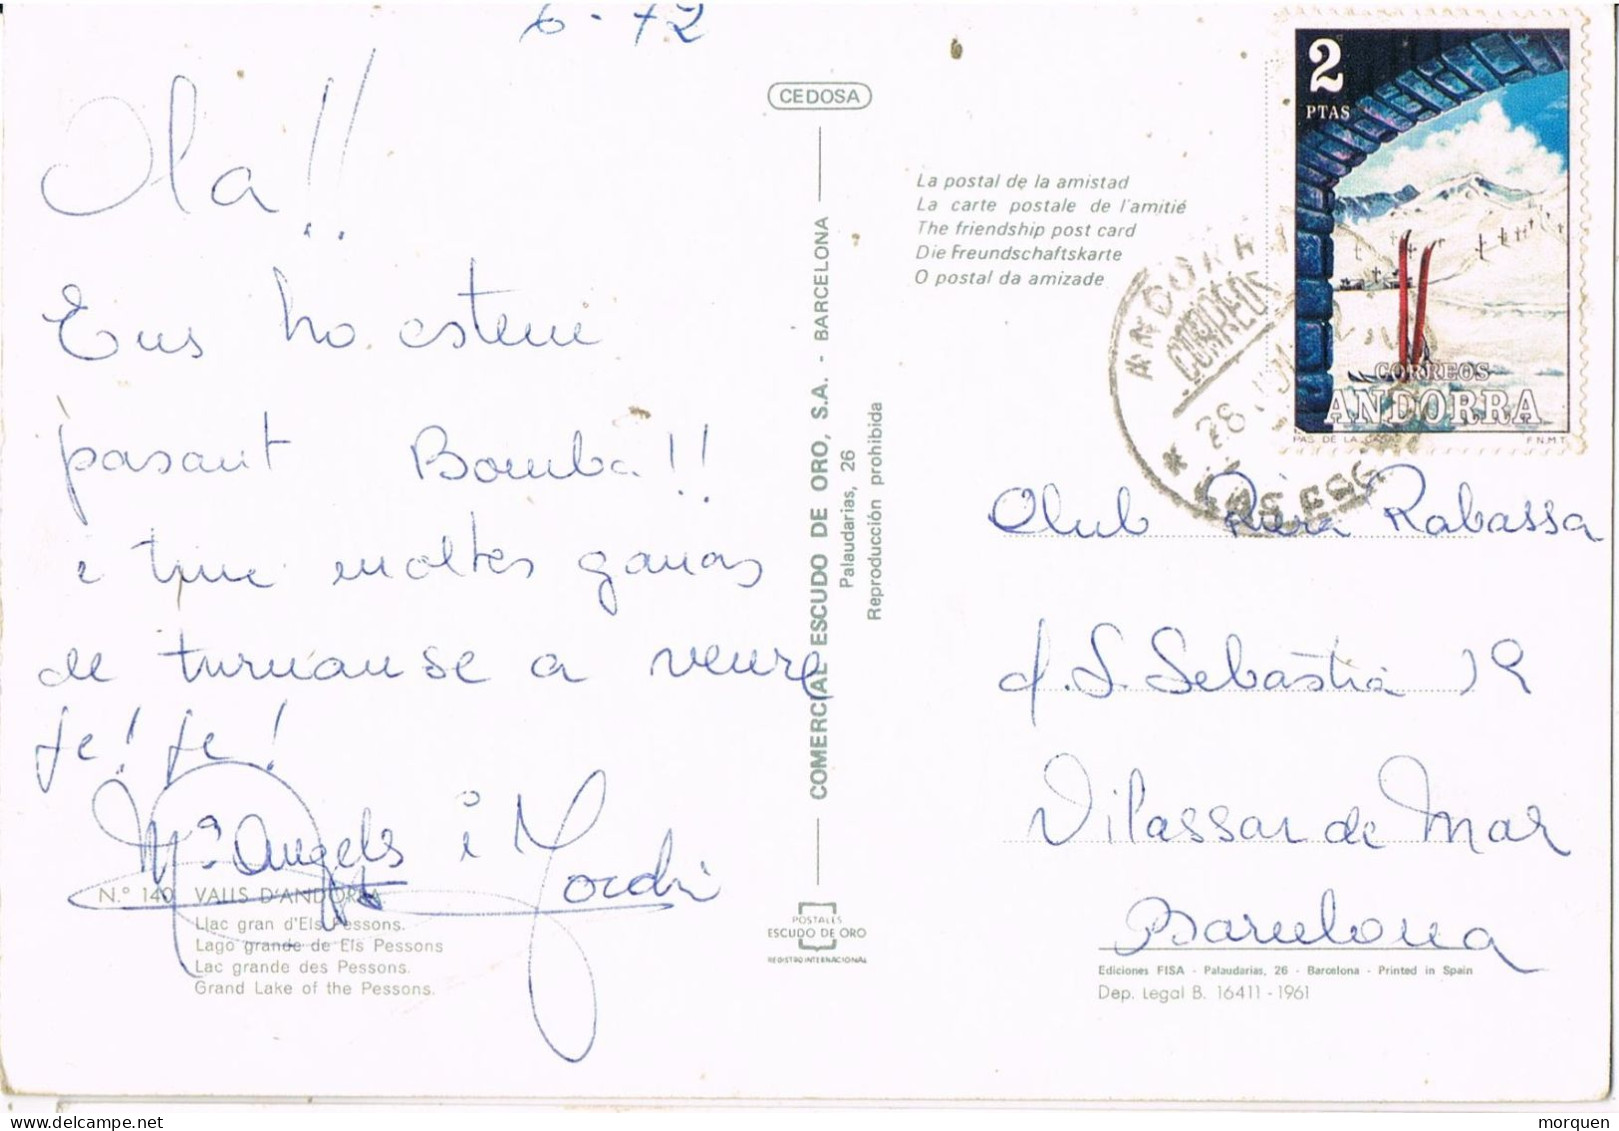 6-72
Olá!!
Ens ho estem
pasant Bomba!!
i tinc moltes ganas
de turnanse a veure
je! je!
Mª Angels i Jordi
N.° 140 VALLS D'ANDORRA
Llac gran d'Els Pessons.
Lago grande de Els Pessons
Lac grande des Pessons.
Grand Lake of the Pessons.
CEDOSA
COMERCIAL ESCUDO DE ORO, S.A. - BARCELONA
Palaudarias, 26
Reproducción prohibida
POSTALES
ESCUDO DE ORO
REGISTRO INTERNACIONAL
La postal de la amistad
La carte postale de l'amitié
The friendship post card
Die Freundschaftskarte
O postal da amizade
2
PTAS
CORREOS
ANDORRA
PAS DE LA CASA
F.N.M.T.
ANDORRA
CORREOS
28
Club Riera Rabassa
S. Sebastià 19
Vilassar de Mar
Barcelona
Ediciones FISA - Palaudarias, 26 - Barcelona - Printed in Spain
Dep. Legal B. 16411 - 1961
morquen